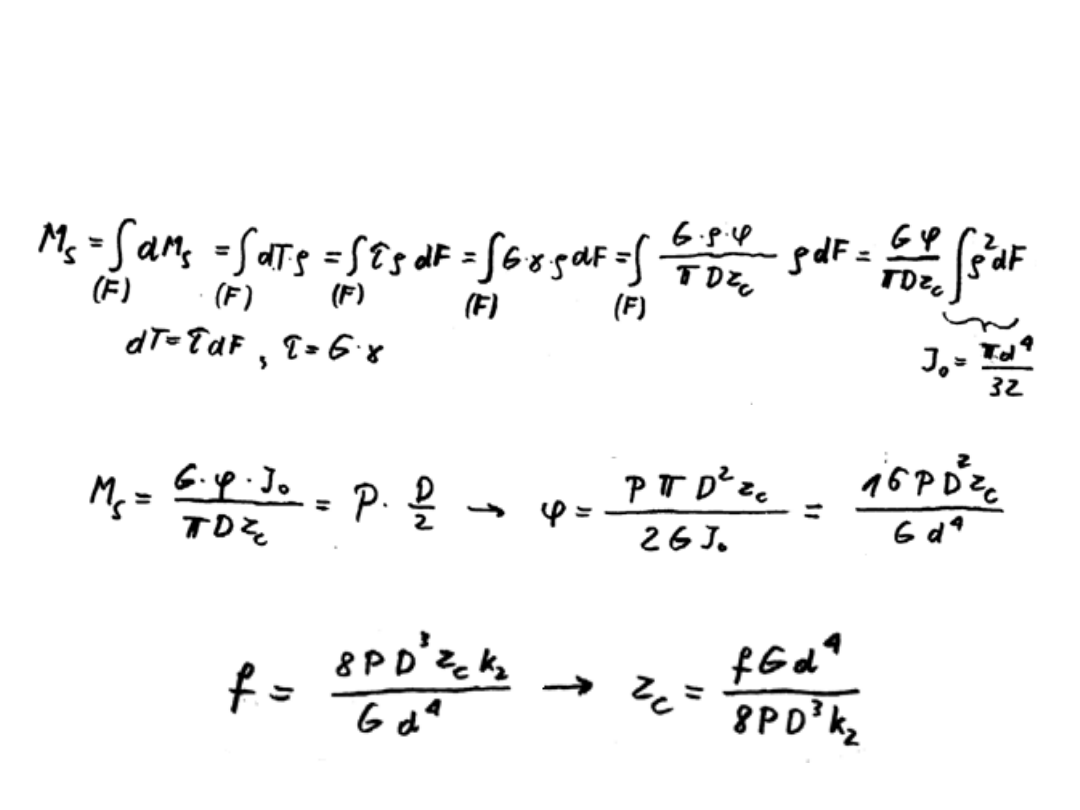 M_s = ∫ dM_s = ∫ dT·ρ = ∫ τ ρ dF = ∫ G·γ·ρ dF = ∫ (G·ρ·φ)/(π D z_c) ρ dF = (G φ)/(π D z_c) ∫ ρ² dF
(F) (F) (F) (F) (F)
dT = τ dF , τ = G·γ
J₀ = (π d⁴)/32
M_s = (G·φ·J₀)/(π D z_c) = P · D/2 → φ = (P π D² z_c)/(2 G J₀) = (16 P D² z_c)/(G d⁴)
f = (8 P D³ z_c k₂)/(G d⁴) → z_c = (f G d⁴)/(8 P D³ k₂)